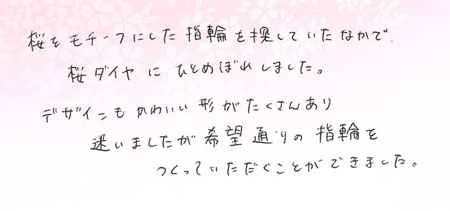 桜をモチーフにした指輪を探していたなかで、
桜ダイヤにひとめぼれしました。
デザインもかわいい形がたくさんあり
迷いましたが希望通りの指輪を
つくっていただくことができました。